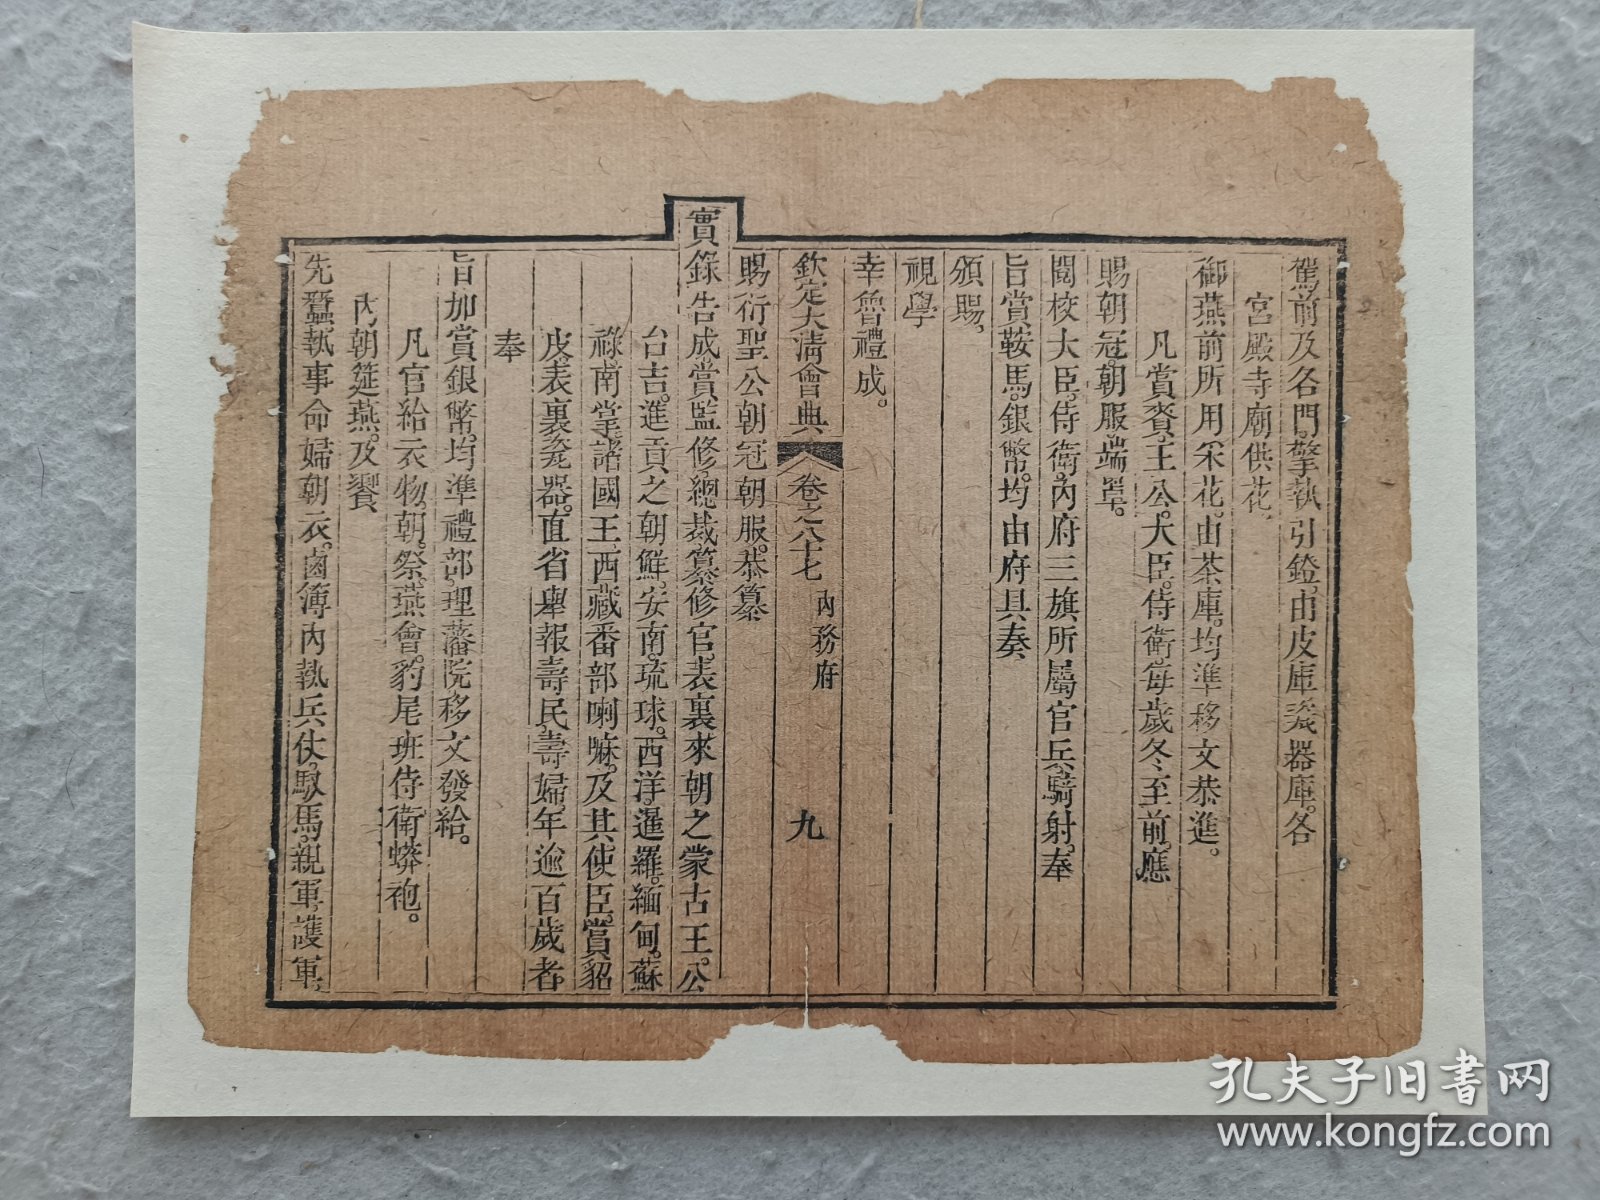 駕前及各門擎執引鐙由皮庫瓷器庫各
宮殿寺廟供花
御燕前所用采花由茶庫均準移文恭進
凡賞賚王公大臣侍衛每歲冬至前應
賜朝冠朝服端罩
閱校大臣侍衛內府三旗所屬官兵騎射奉
旨賞鞍馬銀幣均由府具奏
頒賜
視學
幸魯禮成
欽定大清會典 卷之八十七 內務府 九
賜衍聖公朝冠朝服恭纂
實錄告成賞監修總裁纂修官表裏來朝之蒙古王公
台吉進貢之朝鮮安南琉球西洋暹羅緬甸蘇
祿南掌諸國王西藏番部喇嘛及其使臣賞貂
皮表裏瓷器直省舉報壽民壽婦年逾百歲者
奉
旨加賞銀幣均準禮部理藩院移文發給
凡官給衣物朝祭燕會豹尾班侍衛蟒袍
內朝筵燕及饗
先蠶執事命婦朝衣鹵簿內執兵仗馭馬親軍護軍
孔夫子旧書网
www.kongfz.com